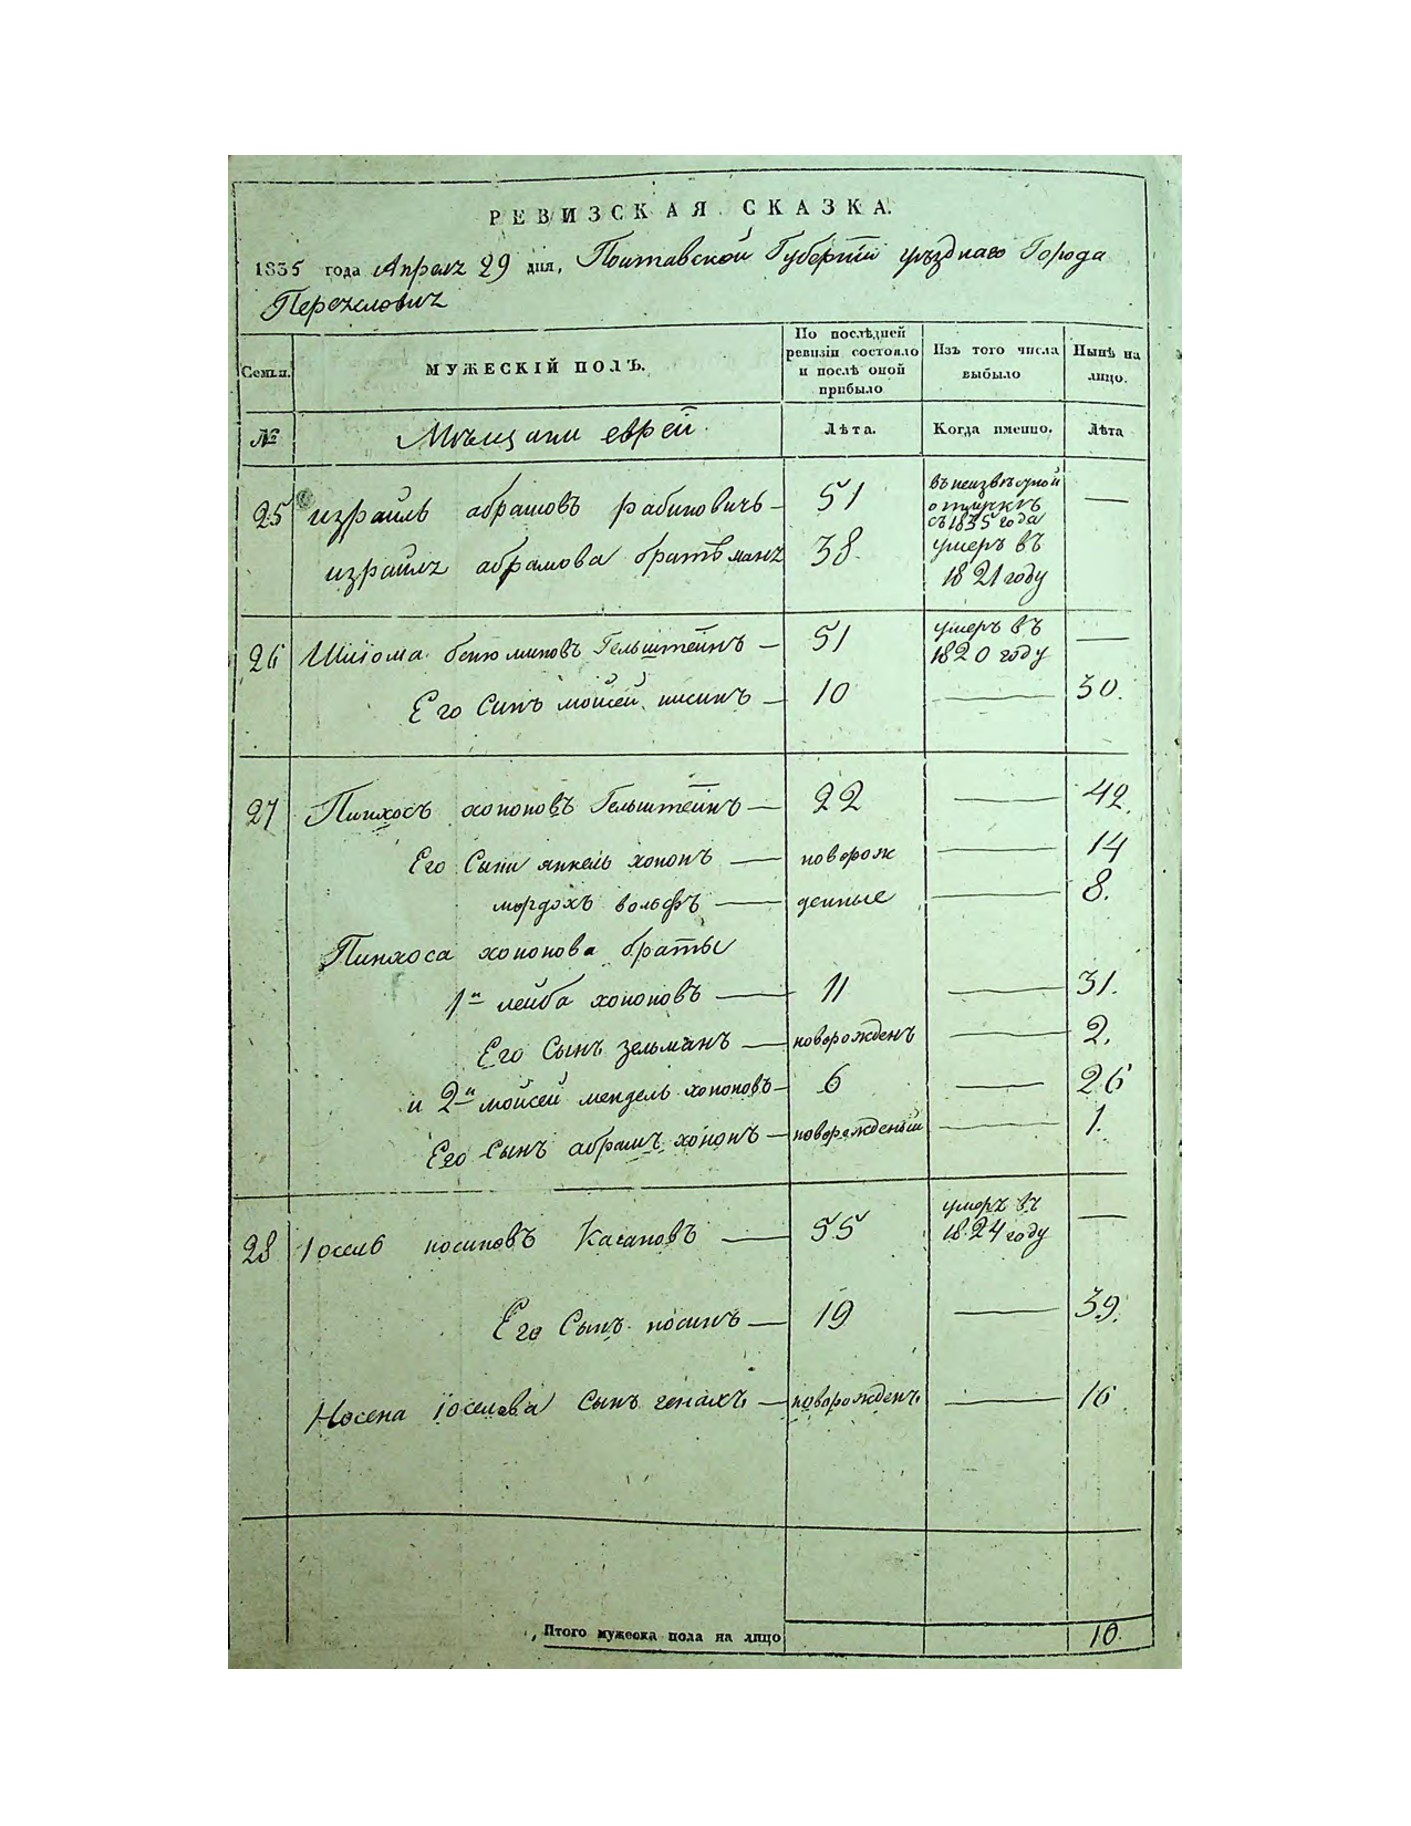 РЕВИЗСКАЯ СКАЗКА.
1835 года Апреля 29 дня, Полтавской Губернїи уѣзднаго Города
Переяслович
Семьи. МУЖЕСКІЙ ПОЛЪ. По послѣдней ревизіи состояло и послѣ оной прибыло Изъ того числа выбыло Нынѣ на лицо.
№ Мѣщани еврей Лѣта. Когда именно. Лѣта
25 израиль абрамовъ рабиновичь — 51 въ неизвѣсной отлучкѣ съ 1835 года —
израиля абрамова братъ 38. умеръ въ 1821 году
26 Шліома бенюминовъ Гельштейнъ — 51 умеръ въ 1820 году —
Его Синъ мойсей нисинъ — 10 — 30.
27 Пинхосъ хононовъ Гельштейнъ — 22 — 42.
Его Сыни янкель хононъ — новорож — 14
мордохъ вольфъ — денные — 8.
Пинхоса хононова браты
1й лейба хононовъ — 11 — 31.
Его Сынъ зельманъ — новорожденъ — 2.
и 2й мойсей мендель хононовъ — 6 — 26
Его Сынъ абрамъ хононъ — новорожденый — 1.
28 Іосель носиновъ Касановъ — 55 умеръ въ 1824 году —
Его Сынъ носинъ — 19 — 39.
Носена іоселева сынъ генахъ — новорожденъ — 16
Итого мужеска пола на лицо 10.